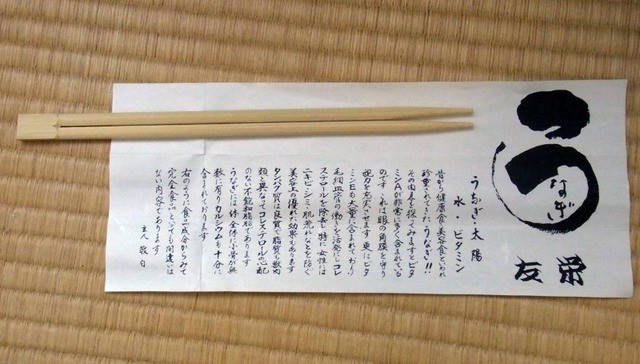 うなぎ
友栄
うなぎ・太陽
水・ビタミン
昔から健康食、美容食といわれ
珍重されてきたうなぎ!!
その由来を探ってみますとビタ
ミンAが非常に多く含まれている
のです これは眼の角膜を守り
視力を充実させます 更にビタ
ミンEも大量に含まれており
毛細血管の働きを活発にしコレ
ステロールを除去し特に女性には
ニキビ・シミ・肌荒れなどを防ぐ
美容上の優れた効果もあります
タンパク質は良質で脂質も獣肉
類と異なってコレステロールの心配
のない不飽和脂肪であります
うなぎには体全体に小骨が無
数に有りカルシウムも十分に
含まれております
右のように食品成分からみて
完全食品といっても間違いは
ない内容であります
主人敬白